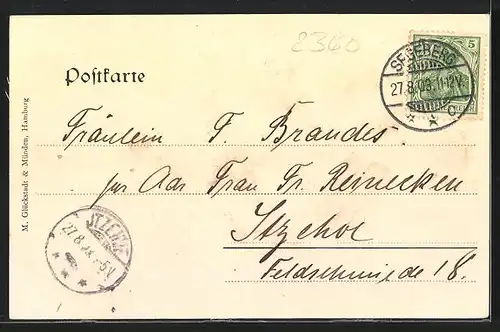 2360
5
SEGEBERG
27.8.03.11-12V.
* * c
Postkarte
Fräulein F. Brandes
per Adr Frau Fr. Reinecken
Itzehoe
Feldschmiede 18.
ITZEHOE
27.8.03. 5-
* * *
M. Glückstadt & Münden, Hamburg